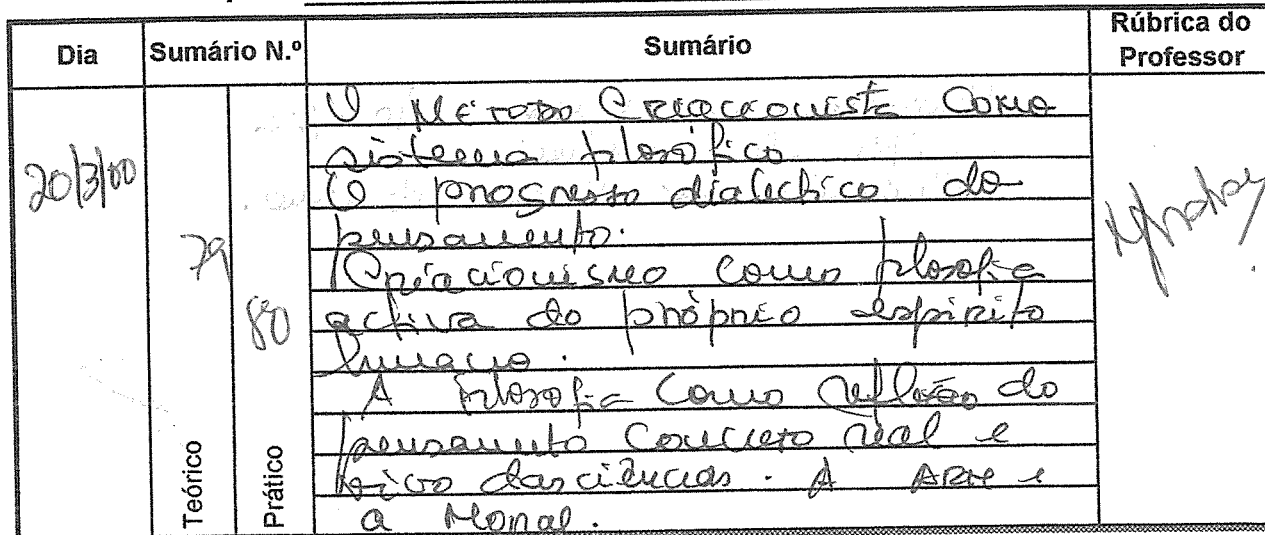 Dia
Sumário N.º
Sumário
Rúbrica do
Professor
20/3/00
79
80
Teórico
Prático
O Método Criacionista Como
sistema filosófico
O progresso dialectico do
pensamento.
Criacionismo como filosofia
activa do próprio espirito
humano.
A filosofia como reflexão do
pensamento concreto real e
vivo das ciências. A Arte e
a Moral.